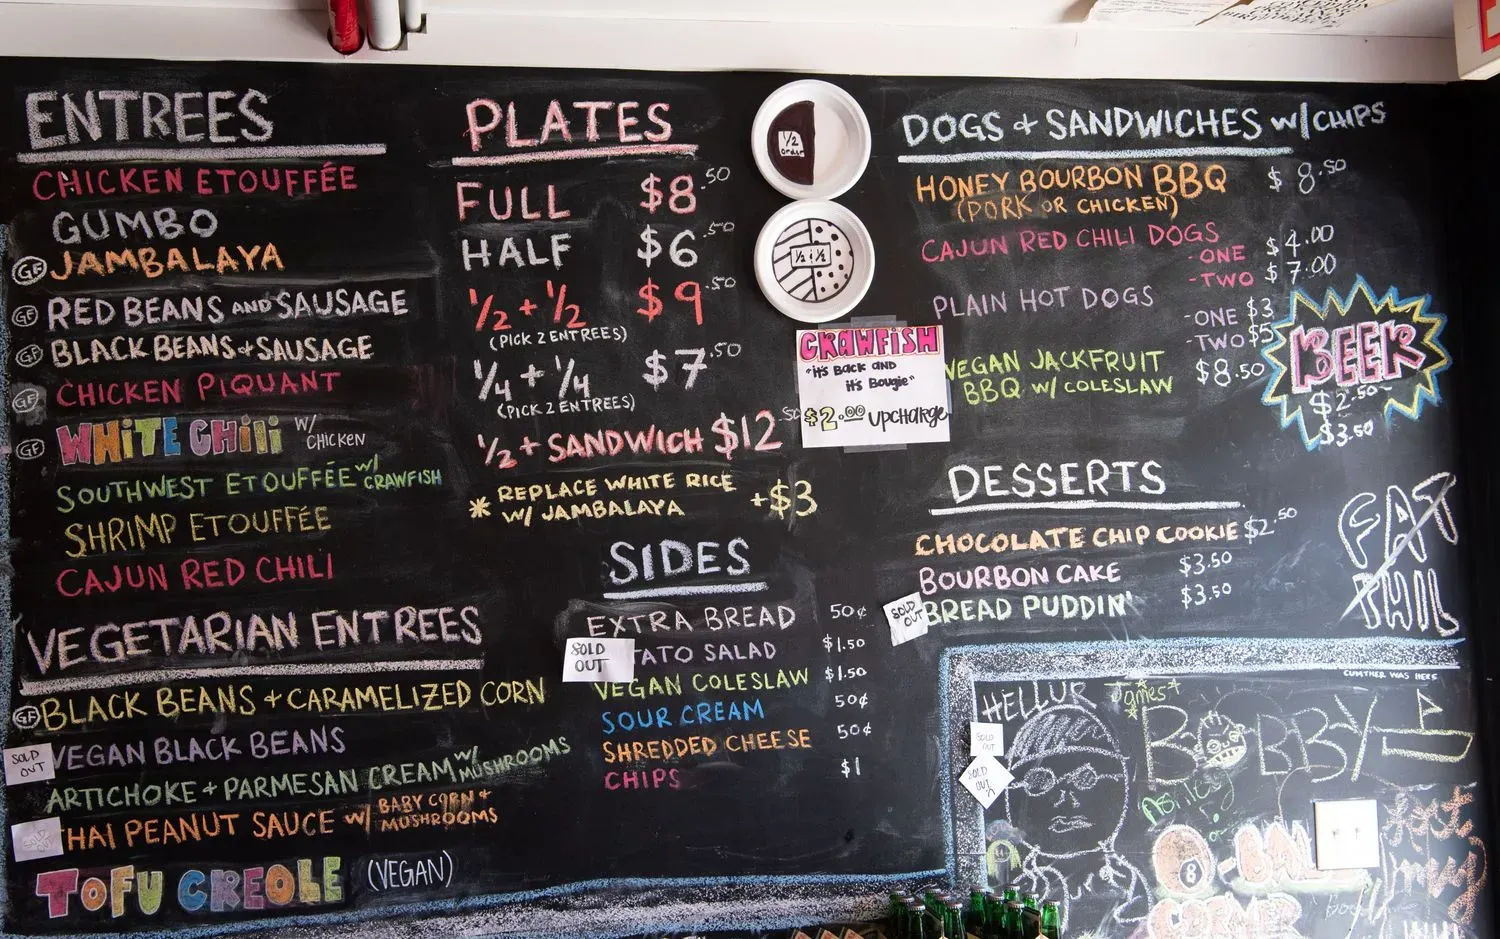 ENTREES
CHICKEN ETOUFFÉE
GUMBO
GF JAMBALAYA
GF RED BEANS AND SAUSAGE
GF BLACK BEANS + SAUSAGE
GF CHICKEN PIQUANT
GF WHITE CHILI W/ CHICKEN
SOUTHWEST ETOUFFÉE W/ CRAWFISH
SHRIMP ETOUFFÉE
CAJUN RED CHILI
VEGETARIAN ENTREES
GF BLACK BEANS + CARAMELIZED CORN
SOLD OUT VEGAN BLACK BEANS
ARTICHOKE + PARMESAN CREAM W/ MUSHROOMS
HAI PEANUT SAUCE W/ BABY CORN + MUSHROOMS
TOFU CREOLE (VEGAN)
PLATES
FULL $8.50
HALF $6.50
1/2 + 1/2 $9.50
(PICK 2 ENTREES)
1/4 + 1/4 $7.50
(PICK 2 ENTREES)
1/2 + SANDWICH $12.50
* REPLACE WHITE RICE +$3
W/ JAMBALAYA
1/2 order
1/2 + 1/2
CRAWFISH
"it's Back and
it's Bougie"
$2.00 upcharge
SIDES
EXTRA BREAD 50¢
SOLD OUT TATO SALAD $1.50
VEGAN COLESLAW $1.50
SOUR CREAM 50¢
SHREDDED CHEESE 50¢
CHIPS $1
DOGS + SANDWICHES W/ CHIPS
HONEY BOURBON BBQ $8.50
(PORK OR CHICKEN)
CAJUN RED CHILI DOGS
-ONE $4.00
-TWO $7.00
PLAIN HOT DOGS
-ONE $3
-TWO $5
VEGAN JACKFRUIT
BBQ W/ COLESLAW $8.50
BEER
$2.50-
$3.50
DESSERTS
CHOCOLATE CHIP COOKIE $2.50
BOURBON CAKE $3.50
SOLD OUT BREAD PUDDIN' $3.50
FAT
PHIL
GUNTHER WAS HERE
HELLUR
James
BOBBY
SOLD OUT
SOLD OUT
Ashley
8
CORNER